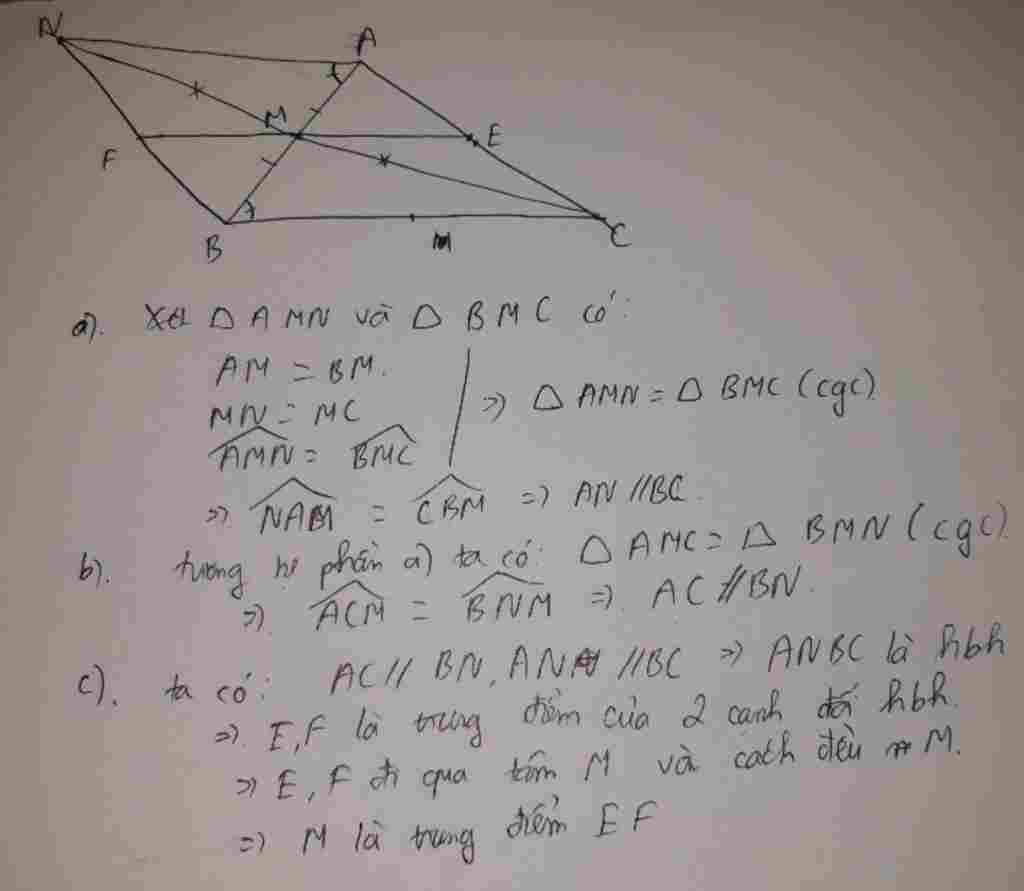 N
A
M
E
F
B
M
C
a). Xét △ AMN và △ BMC có:
AM = BM.
MN = MC
=> △ AMN = △ BMC (cgc)
AMN = BMC
=> NAM = CBM => AN // BC.
b). tương tự phần a) ta có: △ AMC = △ BMN (cgc).
=> ACM = BNM => AC // BN.
c). ta có: AC // BN, AN // BC => ANBC là hbh
=> E, F là trung điểm của 2 cạnh đối hbh.
=> E, F đi qua tâm M và cách đều M.
=> M là trung điểm EF